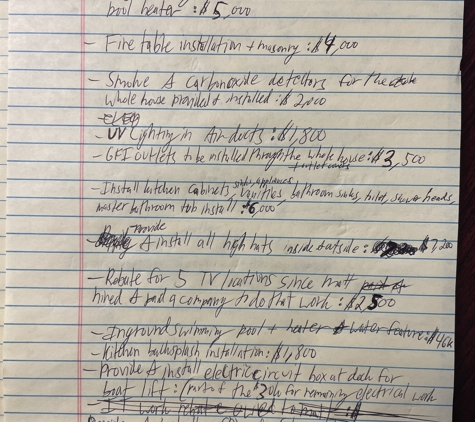 pool heater : $5,000
- Fire table installation + masonry : $4,000
- Smoke & Carbonoxide detectors for the
whole house provided & installed : $2,000
- UV Lighting in Air ducts : $1,800
- GFI outlets to be installed through the whole house : $3,500
+ outlet covers
sinks, appliances
- Install kitchen Cabinets, vanities, bathroom sinks, toilet, shower heads,
master bathroom tub install : $6,000
Provide
- & install all high hats inside outside : $7,200
- Rebate for 5 TV locations since matt
hired & paid a company to do that work : $2,500
- Inground swimming pool + heater & water feature : $46k
- Kitchen backsplash installation : $1,800
- Provide & install electric circuit box at dock for
boat lift : (part of the $30k for remaining electrical work
- IT work rebate owed to : $